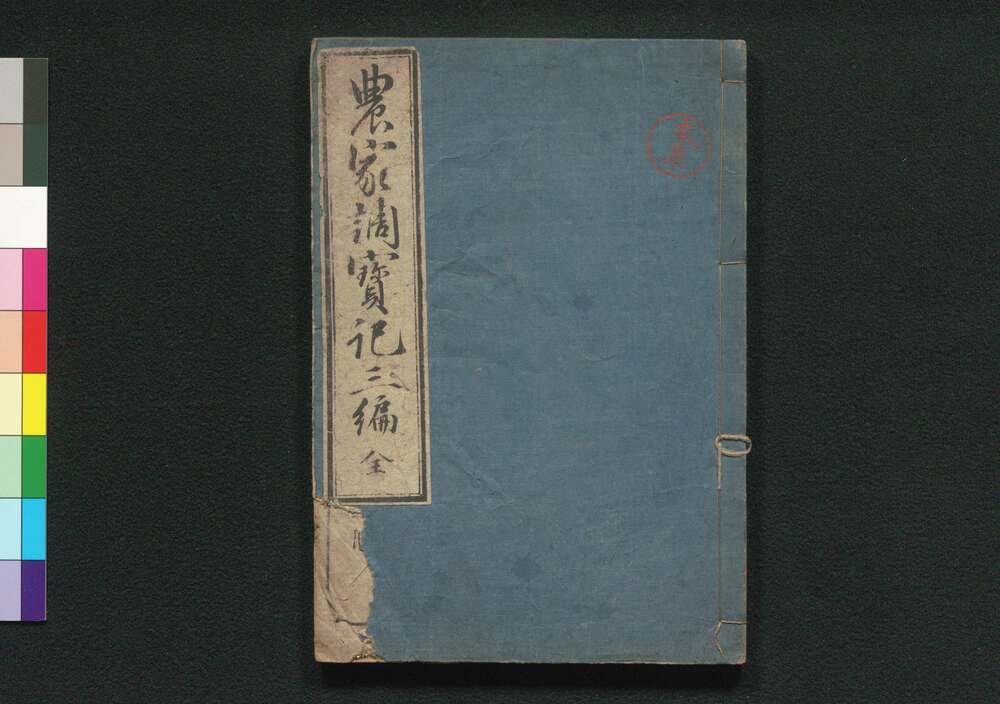 農家調寶記三編 全